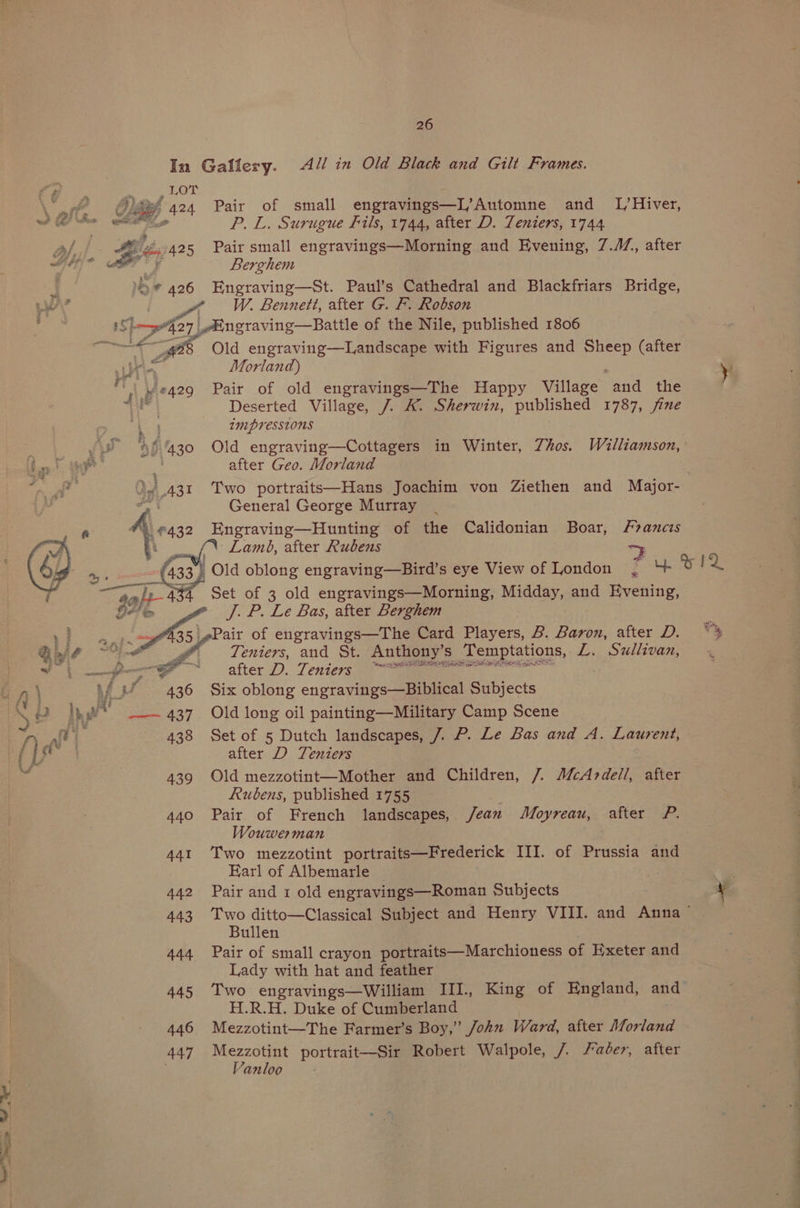 26
In Gallery. All in Old Black and Gilt Frames.
LOT
424 Pair of small engravings—L'Automne and L'Hiver,
P. L. Surugue Fils, 1744, after D. Teniers, 1744
425 Pair small engravings—Morning and Evening, T.M., after
Berghem
426 Engraving—St. Paul's Cathedral and Blackfriars Bridge,
W. Bennett, after G. F. Robson
427 Engraving—Battle of the Nile, published 1806
428 Old engraving—Landscape with Figures and Sheep (after
Morland)
429 Pair of old engravings—The Happy Village and the
Deserted Village, J. K. Sherwin, published 1787, fine
impressions
430 Old engraving—Cottagers in Winter, Thos. Williamson,
after Geo. Morland
431 Two portraits—Hans Joachim von Ziethen and Major-
General George Murray
432 Engraving—Hunting of the Calidonian Boar, Francis
Lamb, after Rubens
433 Old oblong engraving—Bird's eye View of London
434 Set of 3 old engravings—Morning, Midday, and Evening,
J. P. Le Bas, after Berghem
435 Pair of engravings—The Card Players, B. Baron, after D.
Teniers, and St. Anthony's Temptations, L. Sullivan,
after D. Teniers
436 Six oblong engravings—Biblical Subjects
437 Old long oil painting—Military Camp Scene
438 Set of 5 Dutch landscapes, J. P. Le Bas and A. Laurent,
after D Teniers
439 Old mezzotint—Mother and Children, J. McArdell, after
Rubens, published 1755
440 Pair of French landscapes, Jean Moyreau, after P.
Wouwerman
441 Two mezzotint portraits—Frederick III. of Prussia and
Earl of Albemarle
442 Pair and 1 old engravings—Roman Subjects
443 Two ditto—Classical Subject and Henry VIII. and Anna
Bullen
444 Pair of small crayon portraits—Marchioness of Exeter and
Lady with hat and feather
445 Two engravings—William III., King of England, and
H.R.H. Duke of Cumberland
446 Mezzotint—The Farmer's Boy," John Ward, after Morland
447 Mezzotint portrait—Sir Robert Walpole, J. Faber, after
Vanloo